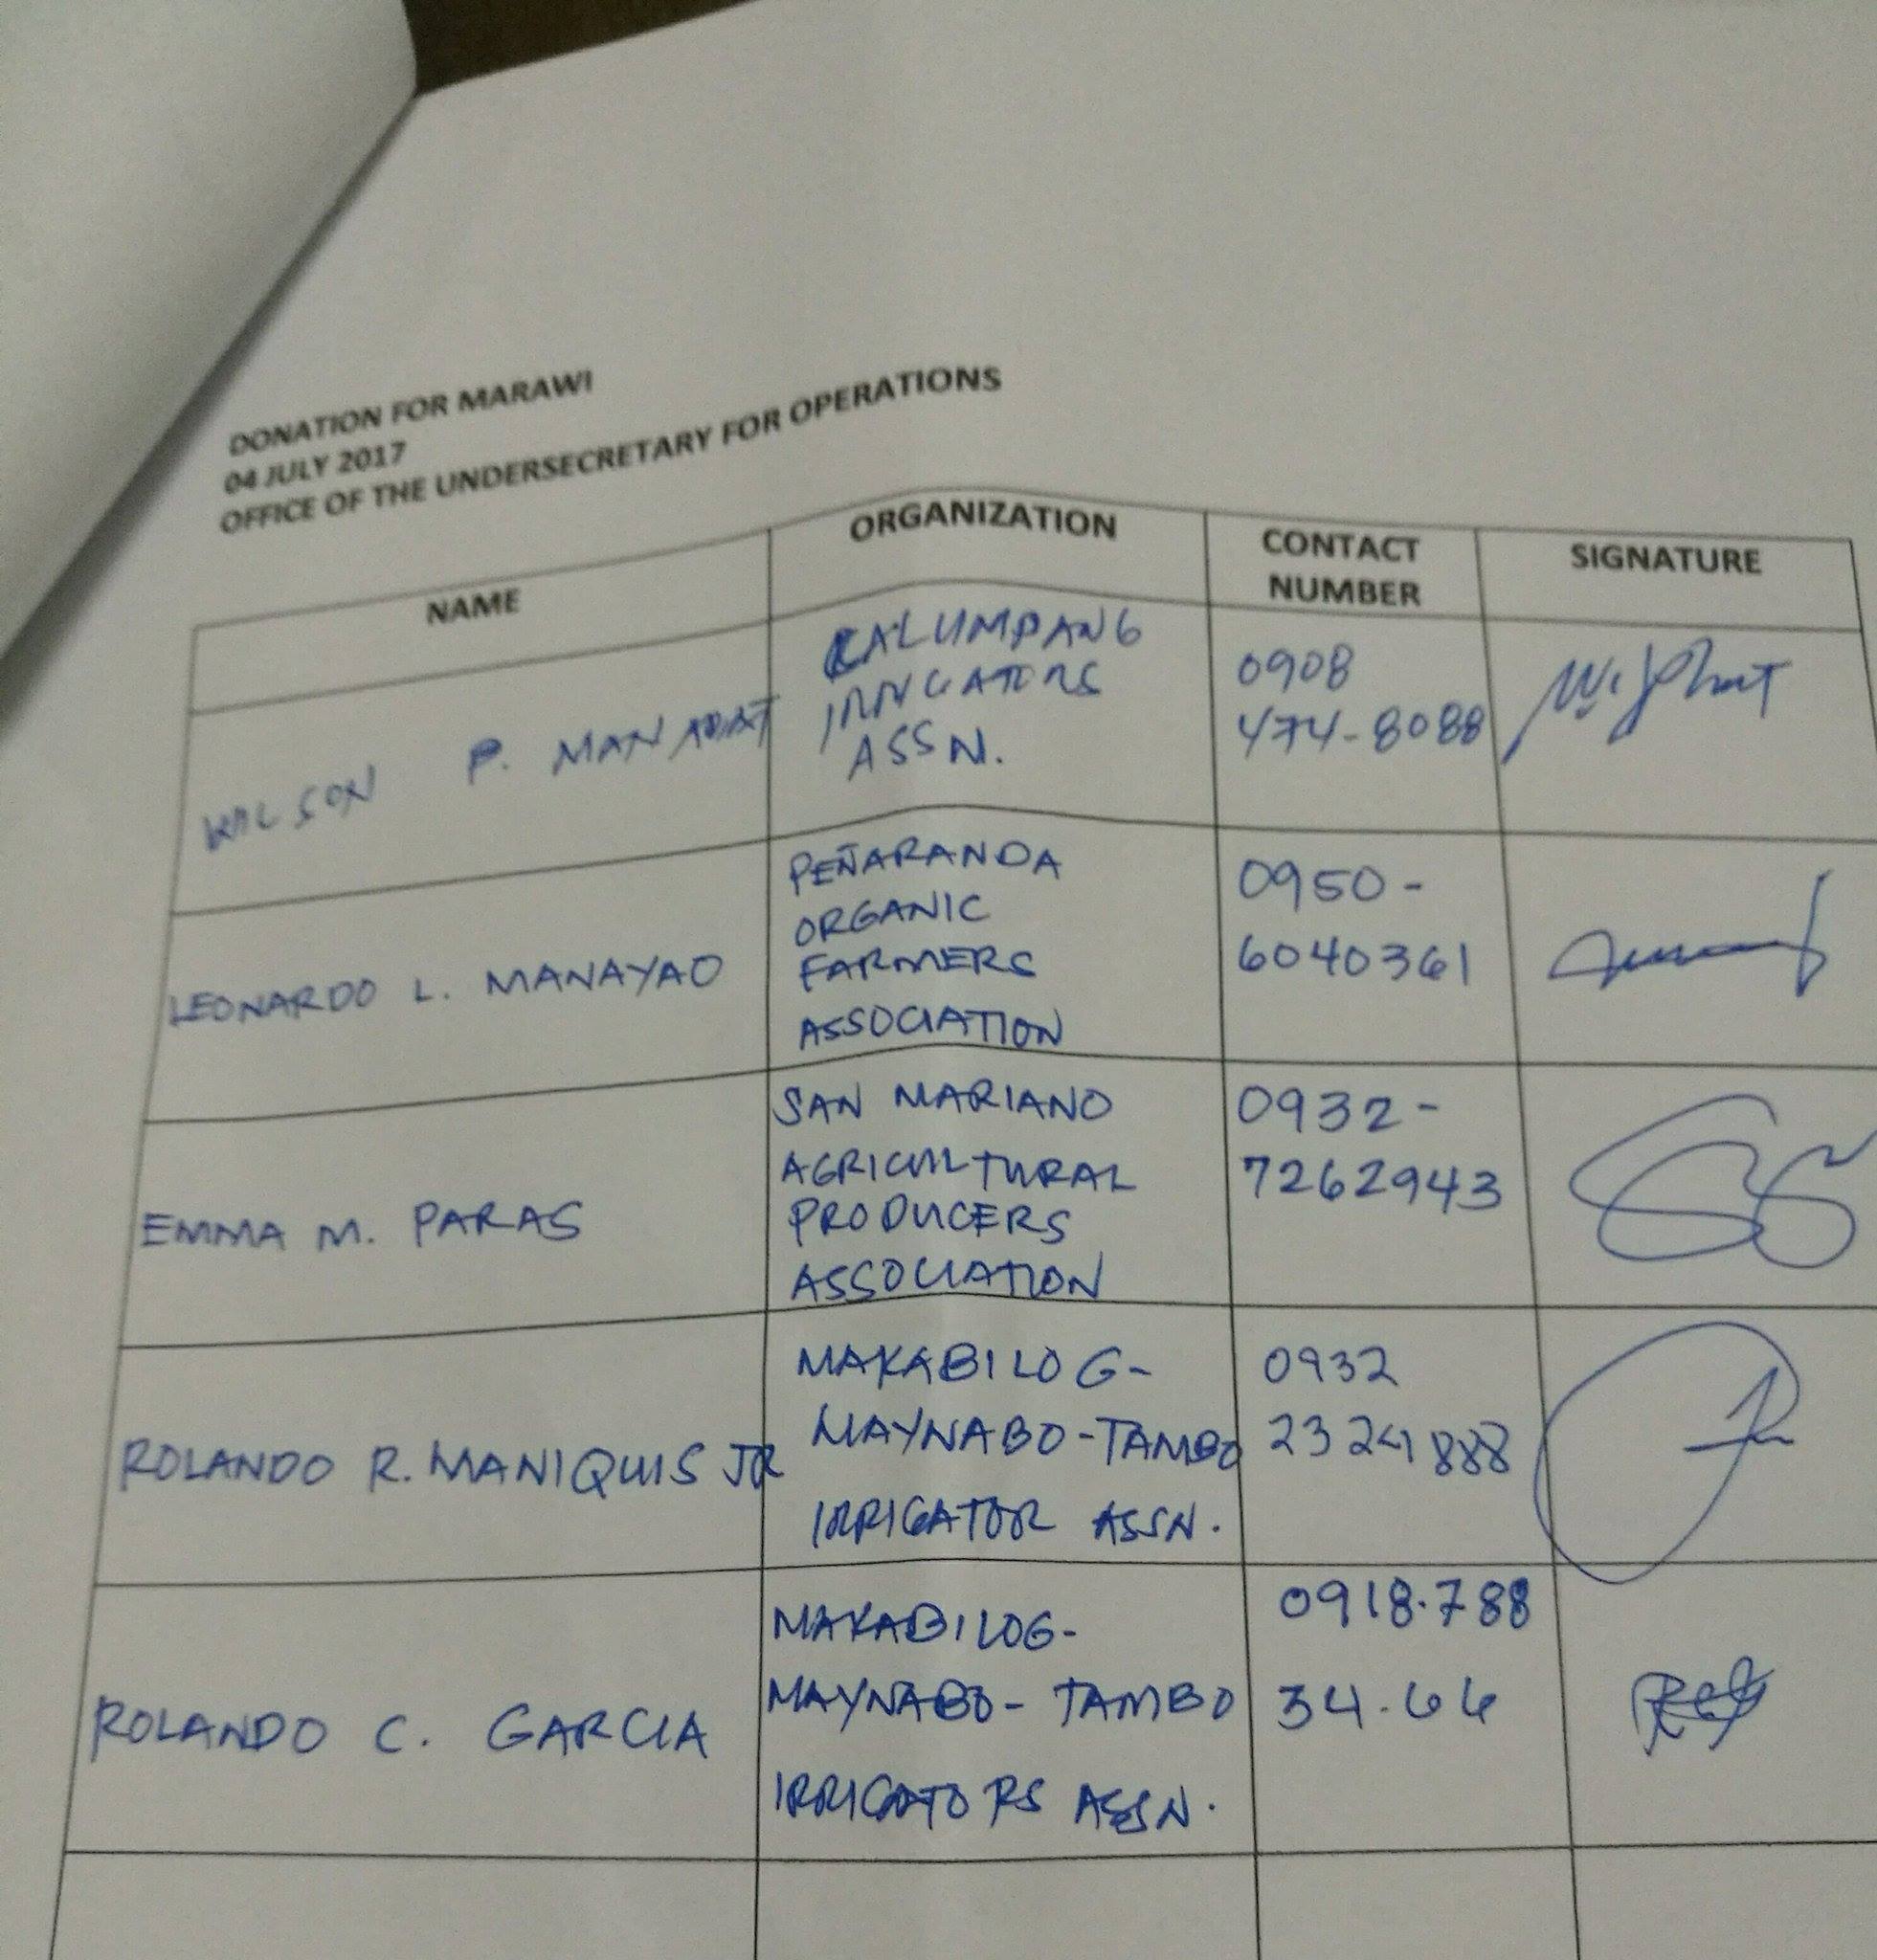 DONATION FOR MARAWI
04 JULY 2017
OFFICE OF THE UNDERSECRETARY FOR OPERATIONS
NAME
ORGANIZATION
CONTACT
NUMBER
SIGNATURE
WILSON P.
CALUMPANG
IRRIGATORS
ASSN.
0908
474-8088
LEONARDO L. MANAYAO
PEÑARANDA
ORGANIC
FARMERS
ASSOCIATION
0950-
6040361
EMMA M. PARAS
SAN MARIANO
AGRICULTURAL
PRODUCERS
ASSOCIATION
0932-
7262943
ROLANDO R. MANIQUIS JR
MAKABILOG-
MAYNABO-TAMBO
IRRIGATOR ASSN.
0932
2324888
ROLANDO C. GARCIA
MAKABILOG-
MAYNABO-TAMBO
IRRIGATORS ASSN.
0918.788
34.66